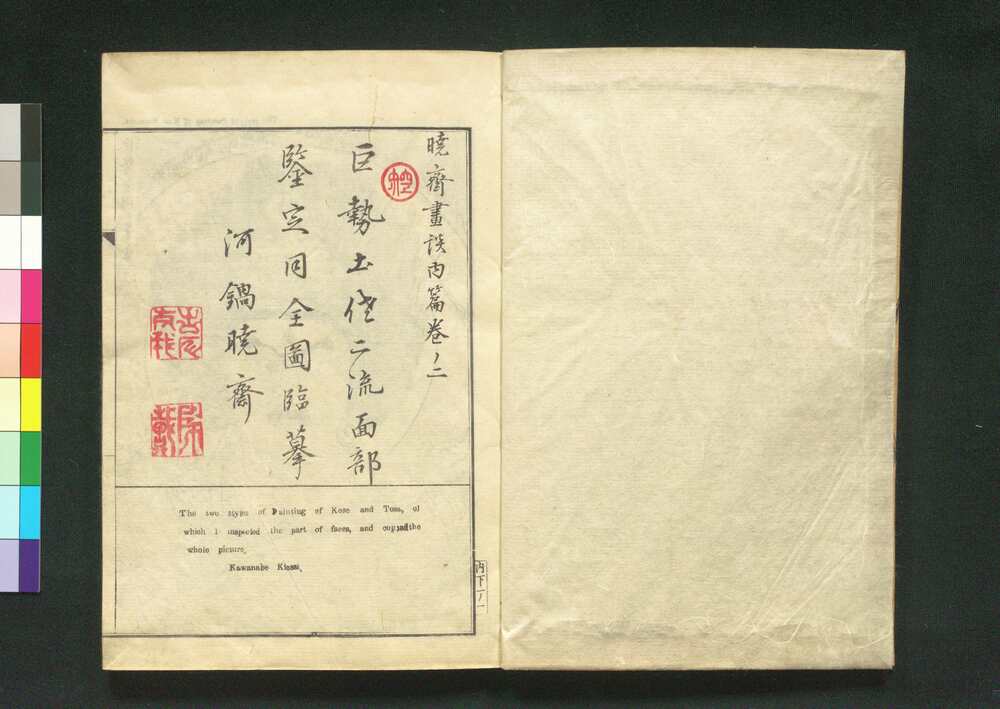 暁齋畫談内篇卷ノ二
巨勢土佐二流面部
鑒定同全圖臨摹
河鍋暁齋
The two styles of Painting of Kose and Tosa, of
which I inspected the part of faces, and copied the
whole picture.
Kawanabe Kiosai.
内下一ノ一